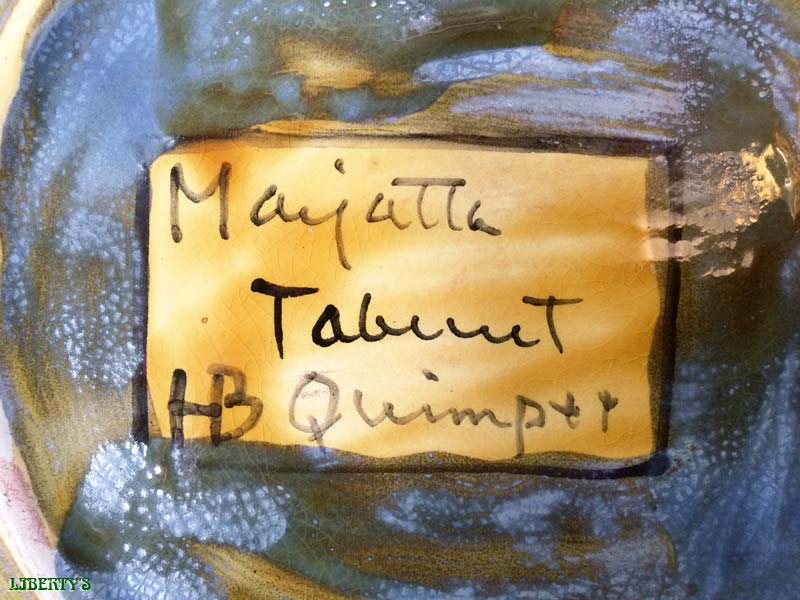 Marjatta
Taburet
HB Quimper
LIBERTY'S